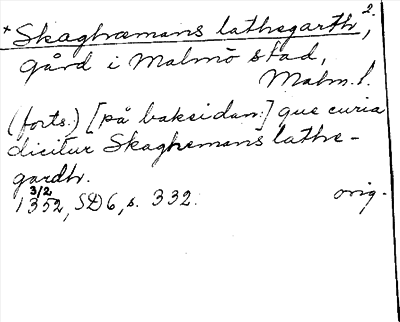 *Skaghæmans lathegarth, 2.
gård i Malmö stad,
Malm. l.
(forts.) [på baksidan:] que curia
dicitur Skaghemans lathe-
gardh.
3/2
1352, SD 6, s. 332. orig.